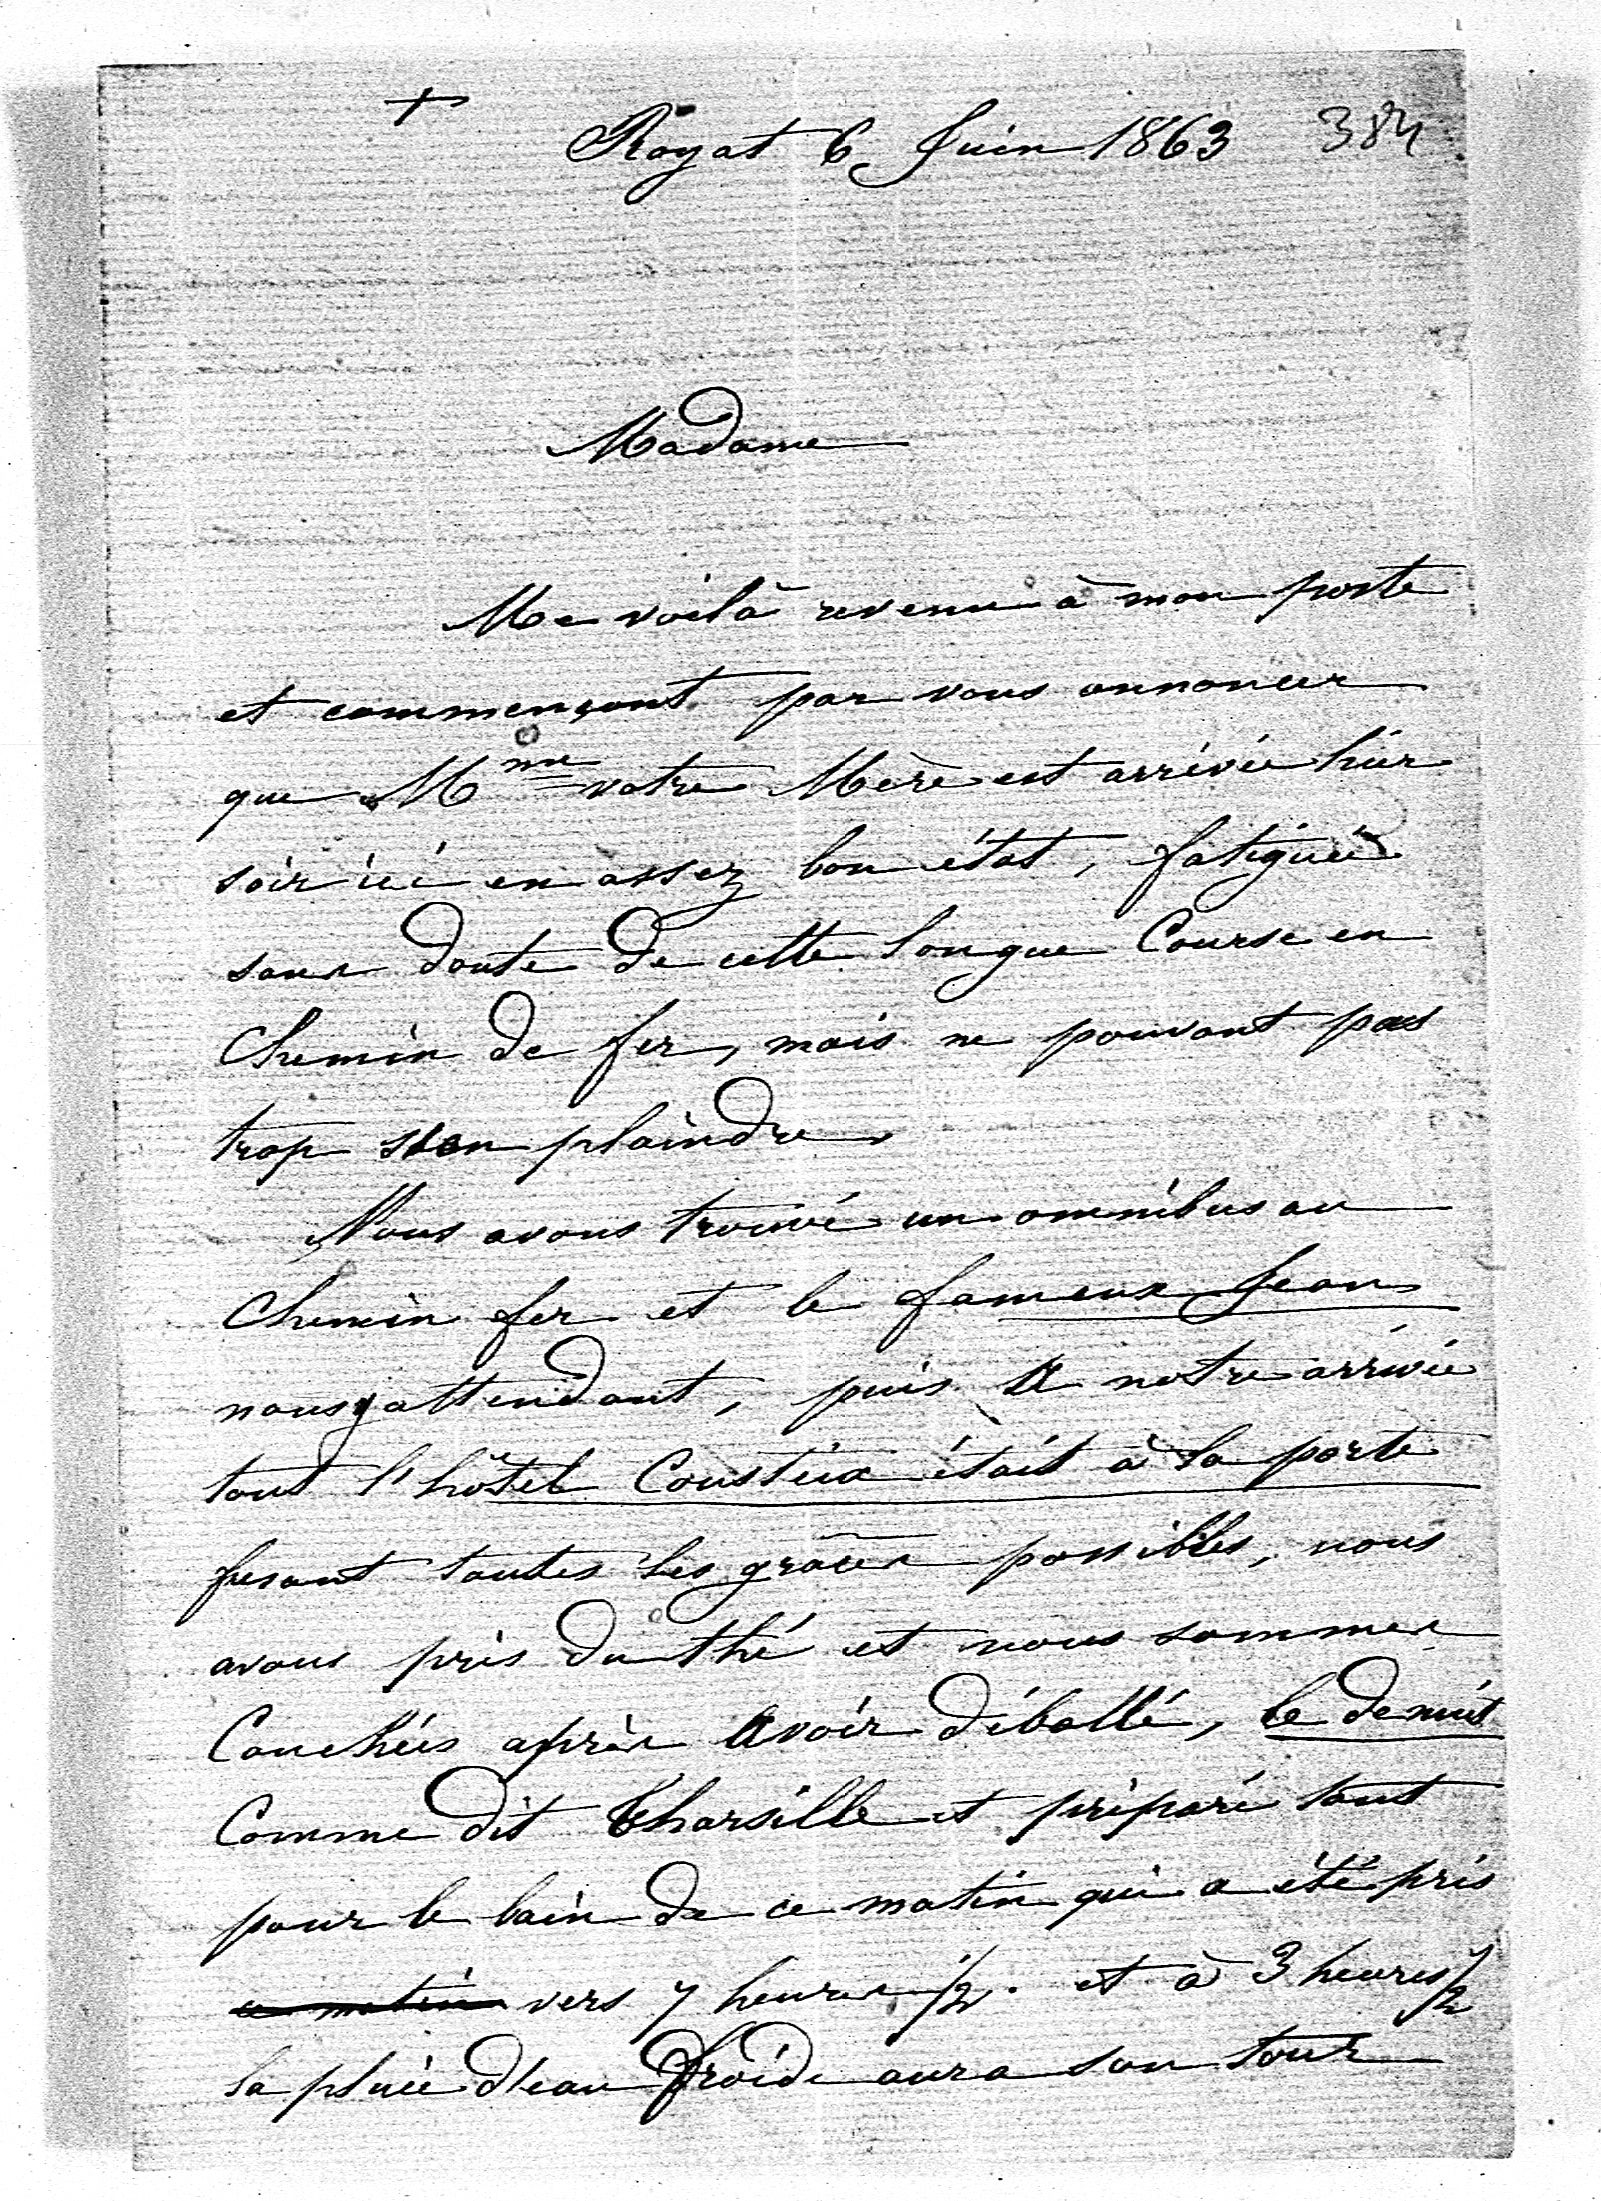 +
Royat 6 Juin 1863 384
Madame
Me voilà revenu à mon poste
et commençant par vous annoncer
que Mme votre Mère est arrivée hier
soir ici en assez bon état, fatiguée
sans doute de cette longue Course en
Chemin de fer, mais ne pouvant pas
trop s'en plaindre.
Nous avons trouvé un omnibus au
Chemin fer et le fameux Jean
nous y attendant, puis A notre arrivée
tout l'hôtel était à la porte
fesant toutes les grâces possibles, nous
avons pris du thé et nous sommes
Couchés après Avoir déballé,
Comme dit Tharsille et préparé tout
pour le bain de ce matin qui a été pris
ce matin vers 7 heures 1/2. et à 3 heures 1/2
la pluie d'eau froide aura son tour